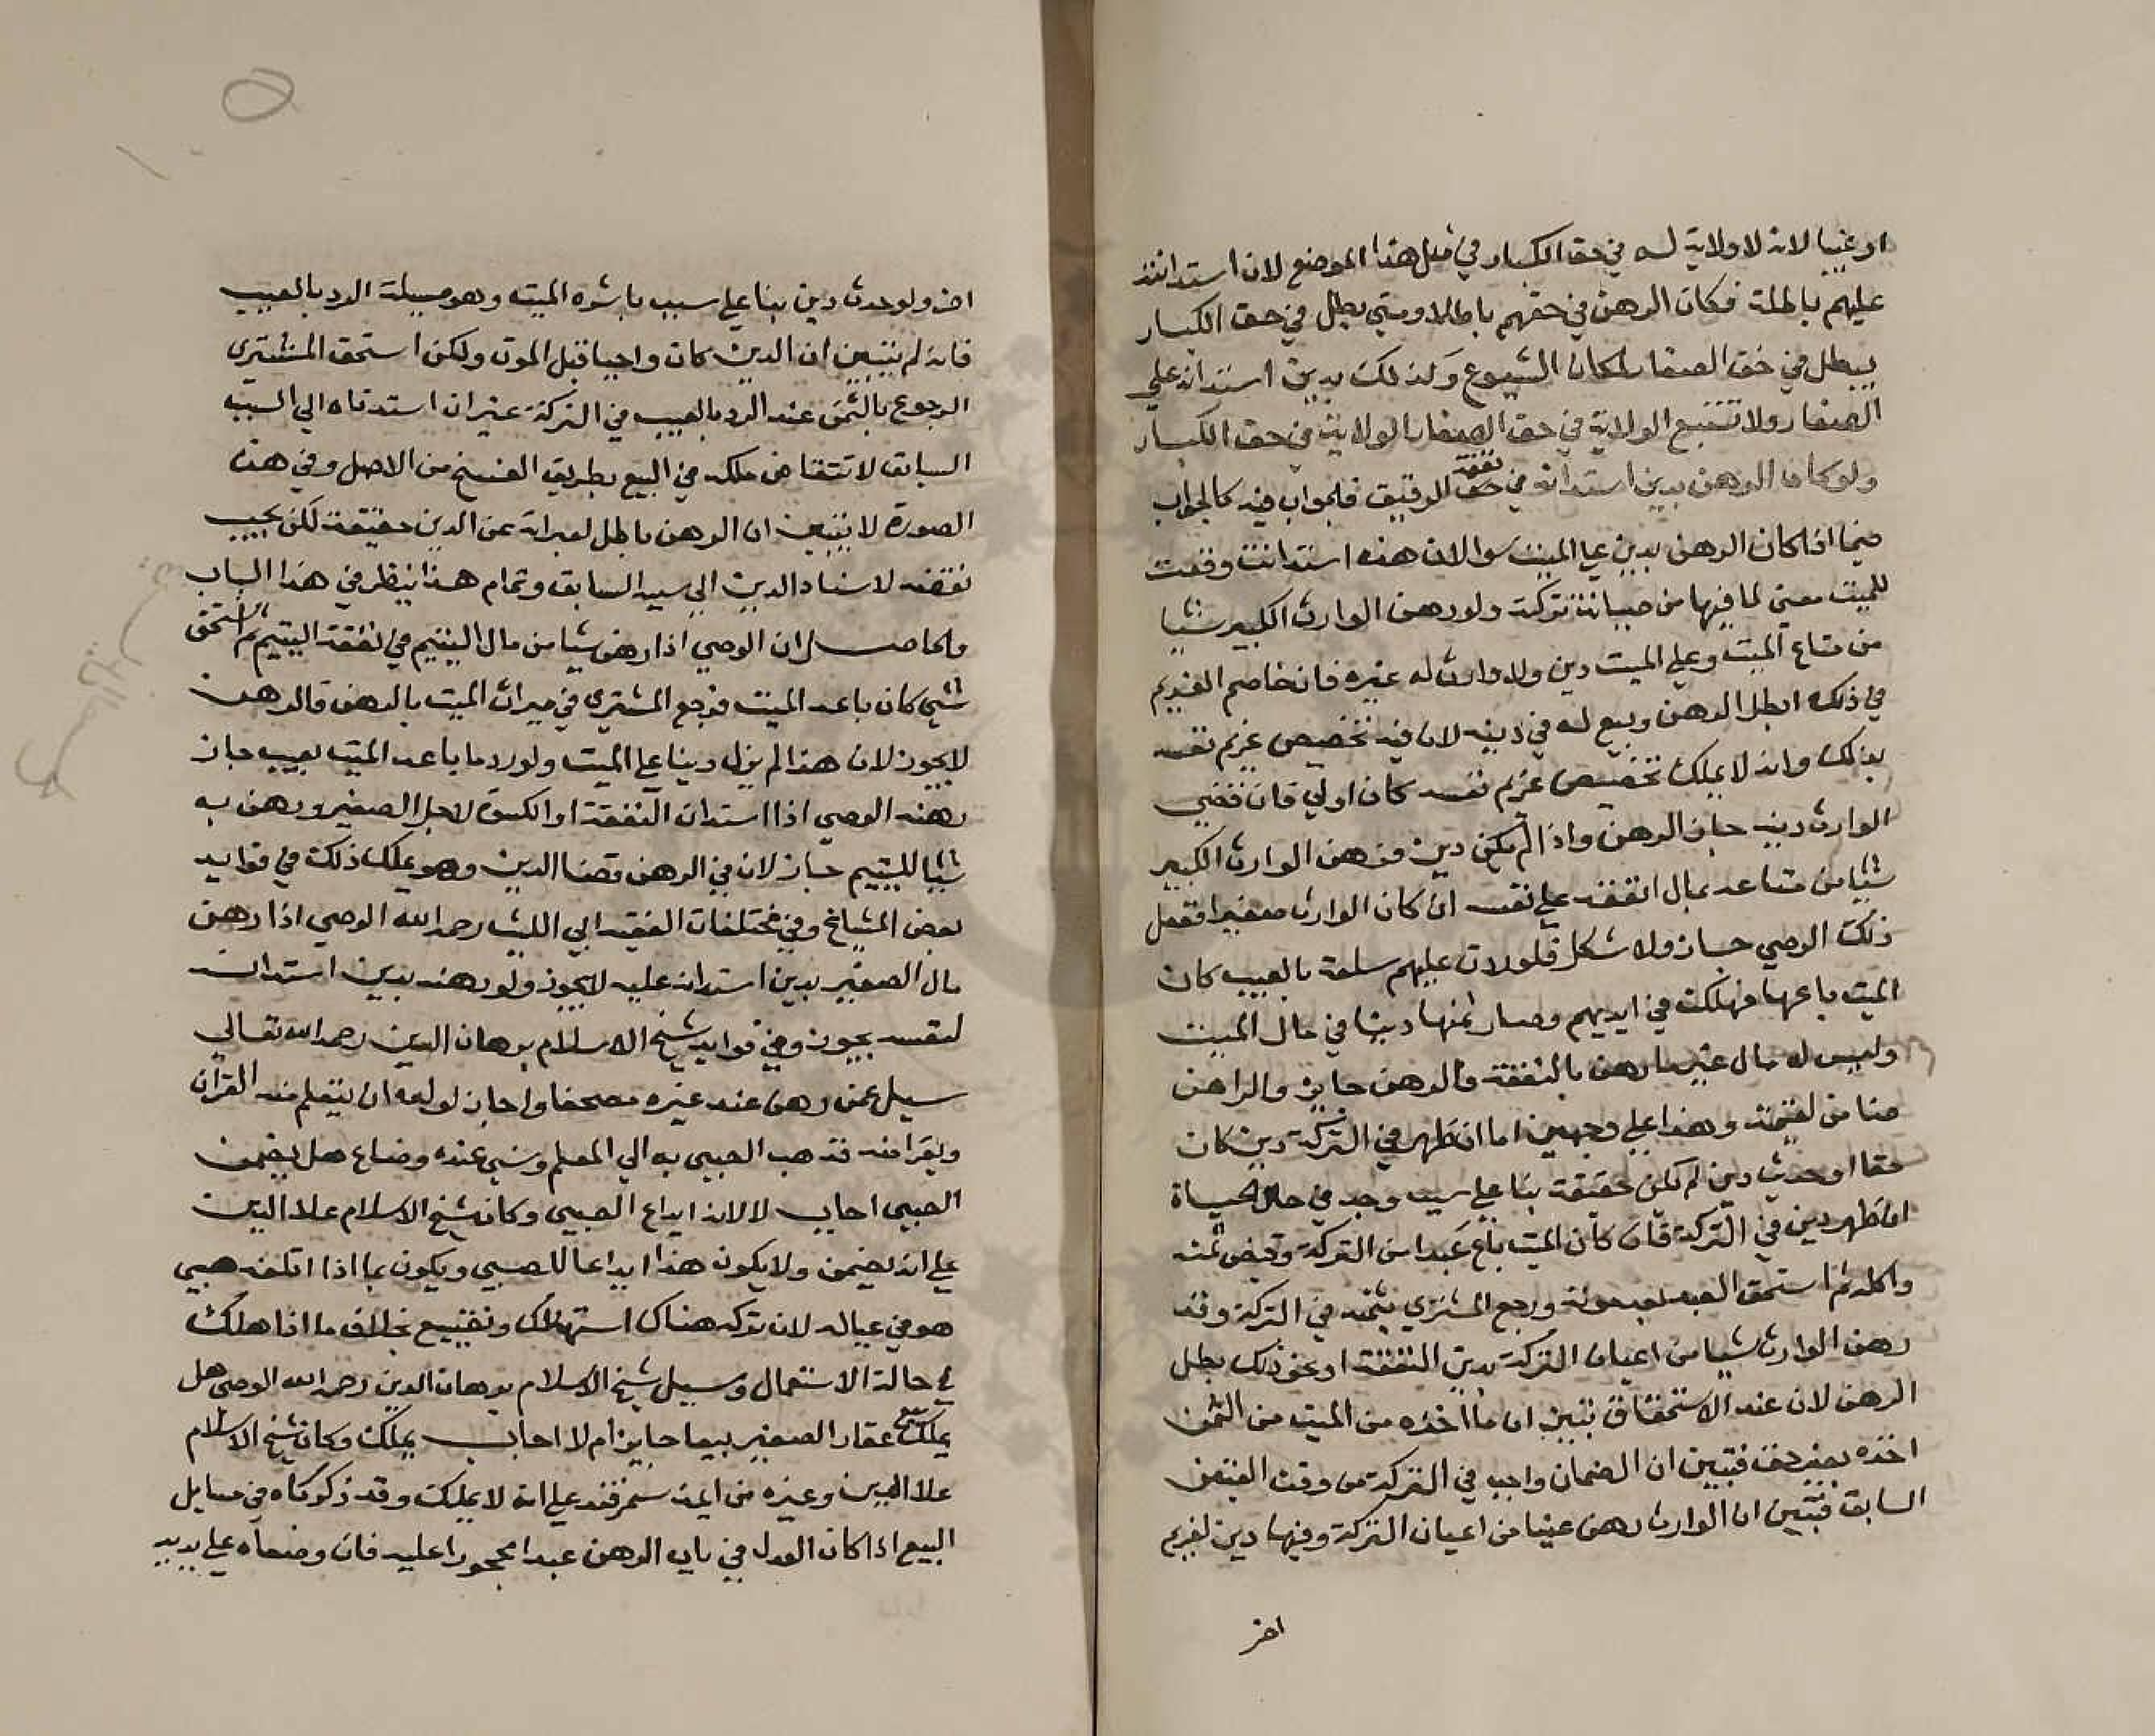 او غنيا لانه لا ولاية له في حق الكبار في مثل هذا الموضع لان استدانته
عليهم باطلة فكان الرهن في حقهم باطلا ومتي بطل في حق الكبار
يبطل في حق الصغار لمكان الشيوع وكذلك بدين استدانه علي
الصغار ولا تستتبع الولاية في حق الصغار الولاية في حق الكبار
ولو كان الرهن بدين استدانه في حق نفقة الرقيق فالجواب فيه كالجواب
فيما اذا كان الرهن بدين علي الميت سوا لان هذه استدانة وقعت
للميت معني لما فيها من صيانة تركته ولو رهن الوارث الكبير شيا
من متاع الميت وعلي الميت دين ولا وارث له غيره فان خاصم الغريم
في ذلك ابطل الرهن وبيع له في دينه لان فيه تخصيص غريم نفسه
بذلك وانه لا يملك تخصيص غريم نفسه كان اولي فان قضي
الوارث دينه جاز الرهن واذا لم يكن دين فرهن الوارث الكبير
شيا من متاعه بمال انفقه علي نفسه ان كان الوارث صغيرا ففعل
ذلك الوصي جاز ولا شكل فلو لات عليهم سلعة بالعيب كان
الميت باعها فهلكت في ايديهم وصار ثمنها دينا في مال الميت
وليس له مال غير ما رهن بالنفقة فالرهن جايز والراهن
ضامن لقيمته وهذا علي وجهين اما ان ظهر في التركة دين كان
حقا او حدث دين لم يكن حقيقة بنا علي سبب وجد في حال الحياة
اما ظهر دين في التركة فان كان الميت باع عبدا من التركة وقبض ثمنه
واكله ثم استحق العبد بعد موته ورجع المشتري بثمنه في التركة وقد
رهن الوارث شيا من اعيان التركة بدين النفقة او غير ذلك بطل
الرهن لان عند الاستحقاق تبين ان ما اخذه من الميت من الثمن
اخذه بغير حق فتبين ان الضمان واجب في التركة من وقت القبض
السابق فتبين ان الوارث رهن عينا من اعيان التركة وفيها دين لغريم
اخر
اخر ولو حدث دين بنا علي سبب باشره الميت وهو مسيلة الرد بالعيب
فانه لم يتبين ان الدين كان واجبا قبل الموت ولكن استحق المشتري
الرجوع بالثمن عند الرد بالعيب في التركة غير ان استدناه الي السبب
السابق لانتقاض ملكه في البيع بطريق الفسخ من الاصل وفي هذه
الصورة لا يتبين ان الرهن باطل لعبرانه عن الدين حقيقة لكن يجب
نقضه لاسناد الدين الي سببه السابق وتمام هذا ينظر في هذا الباب
والحاصل ان الوصي اذا رهن شيا من مال اليتيم في نفقة اليتيم ثم استحق
شي كان باعه الميت فرجع المشتري في ميراث الميت بالرهن فالرهن
لا يجوز لان هذا لم يزل دينا علي الميت ولو رد ما باعه الميت بعيب جاز
رهنه الوصي اذا استدان النفقة او الكسوة لاجل الصغير ورهن به
شيا لليتيم جاز لان في الرهن قضا الدين وهو يملك ذلك في فوايد
بعض المشايخ وفي مختلفات الفقيه ابي الليث رحمه الله الوصي اذا رهن
مال الصغير بدين استدانه عليه لا يجوز ولو رهنه بدين استدانه
لنفسه يجوز وفي فوايد شيخ الاسلام برهان الدين رحمه الله تعالي
سيل عمن رهن عند غيره مصحفا واجاز لولده ان يتعلم منه القران
ويقرا منه فذهب الصبي به الي المعلم ونسي عنده وضاع هل يضمن
الصبي اجاب لا لانه ايداع الصبي وكان شيخ الاسلام علا الدين
علي انه يضمن ولا يكون هذا ايداعا للصبي ويكون بما اذا اتلفه صبي
هو في عياله لان تركه هناك استهلاك وتضييع بخلاف ما اذا هلك
في حالة الاستعمال وسيل شيخ الاسلام برهان الدين رحمه الله الوصي هل
يملك بيع عقار الصغير بيعا جايزا ام لا اجاب يملك وكان شيخ الاسلام
علا الدين وغيره من ايمة سمرقند علي انه لا يملك وقد ذكرناه في مسايل
البيع اذا كان العدل في باب الرهن عبدا محجورا عليه فان وضعاه علي يديه